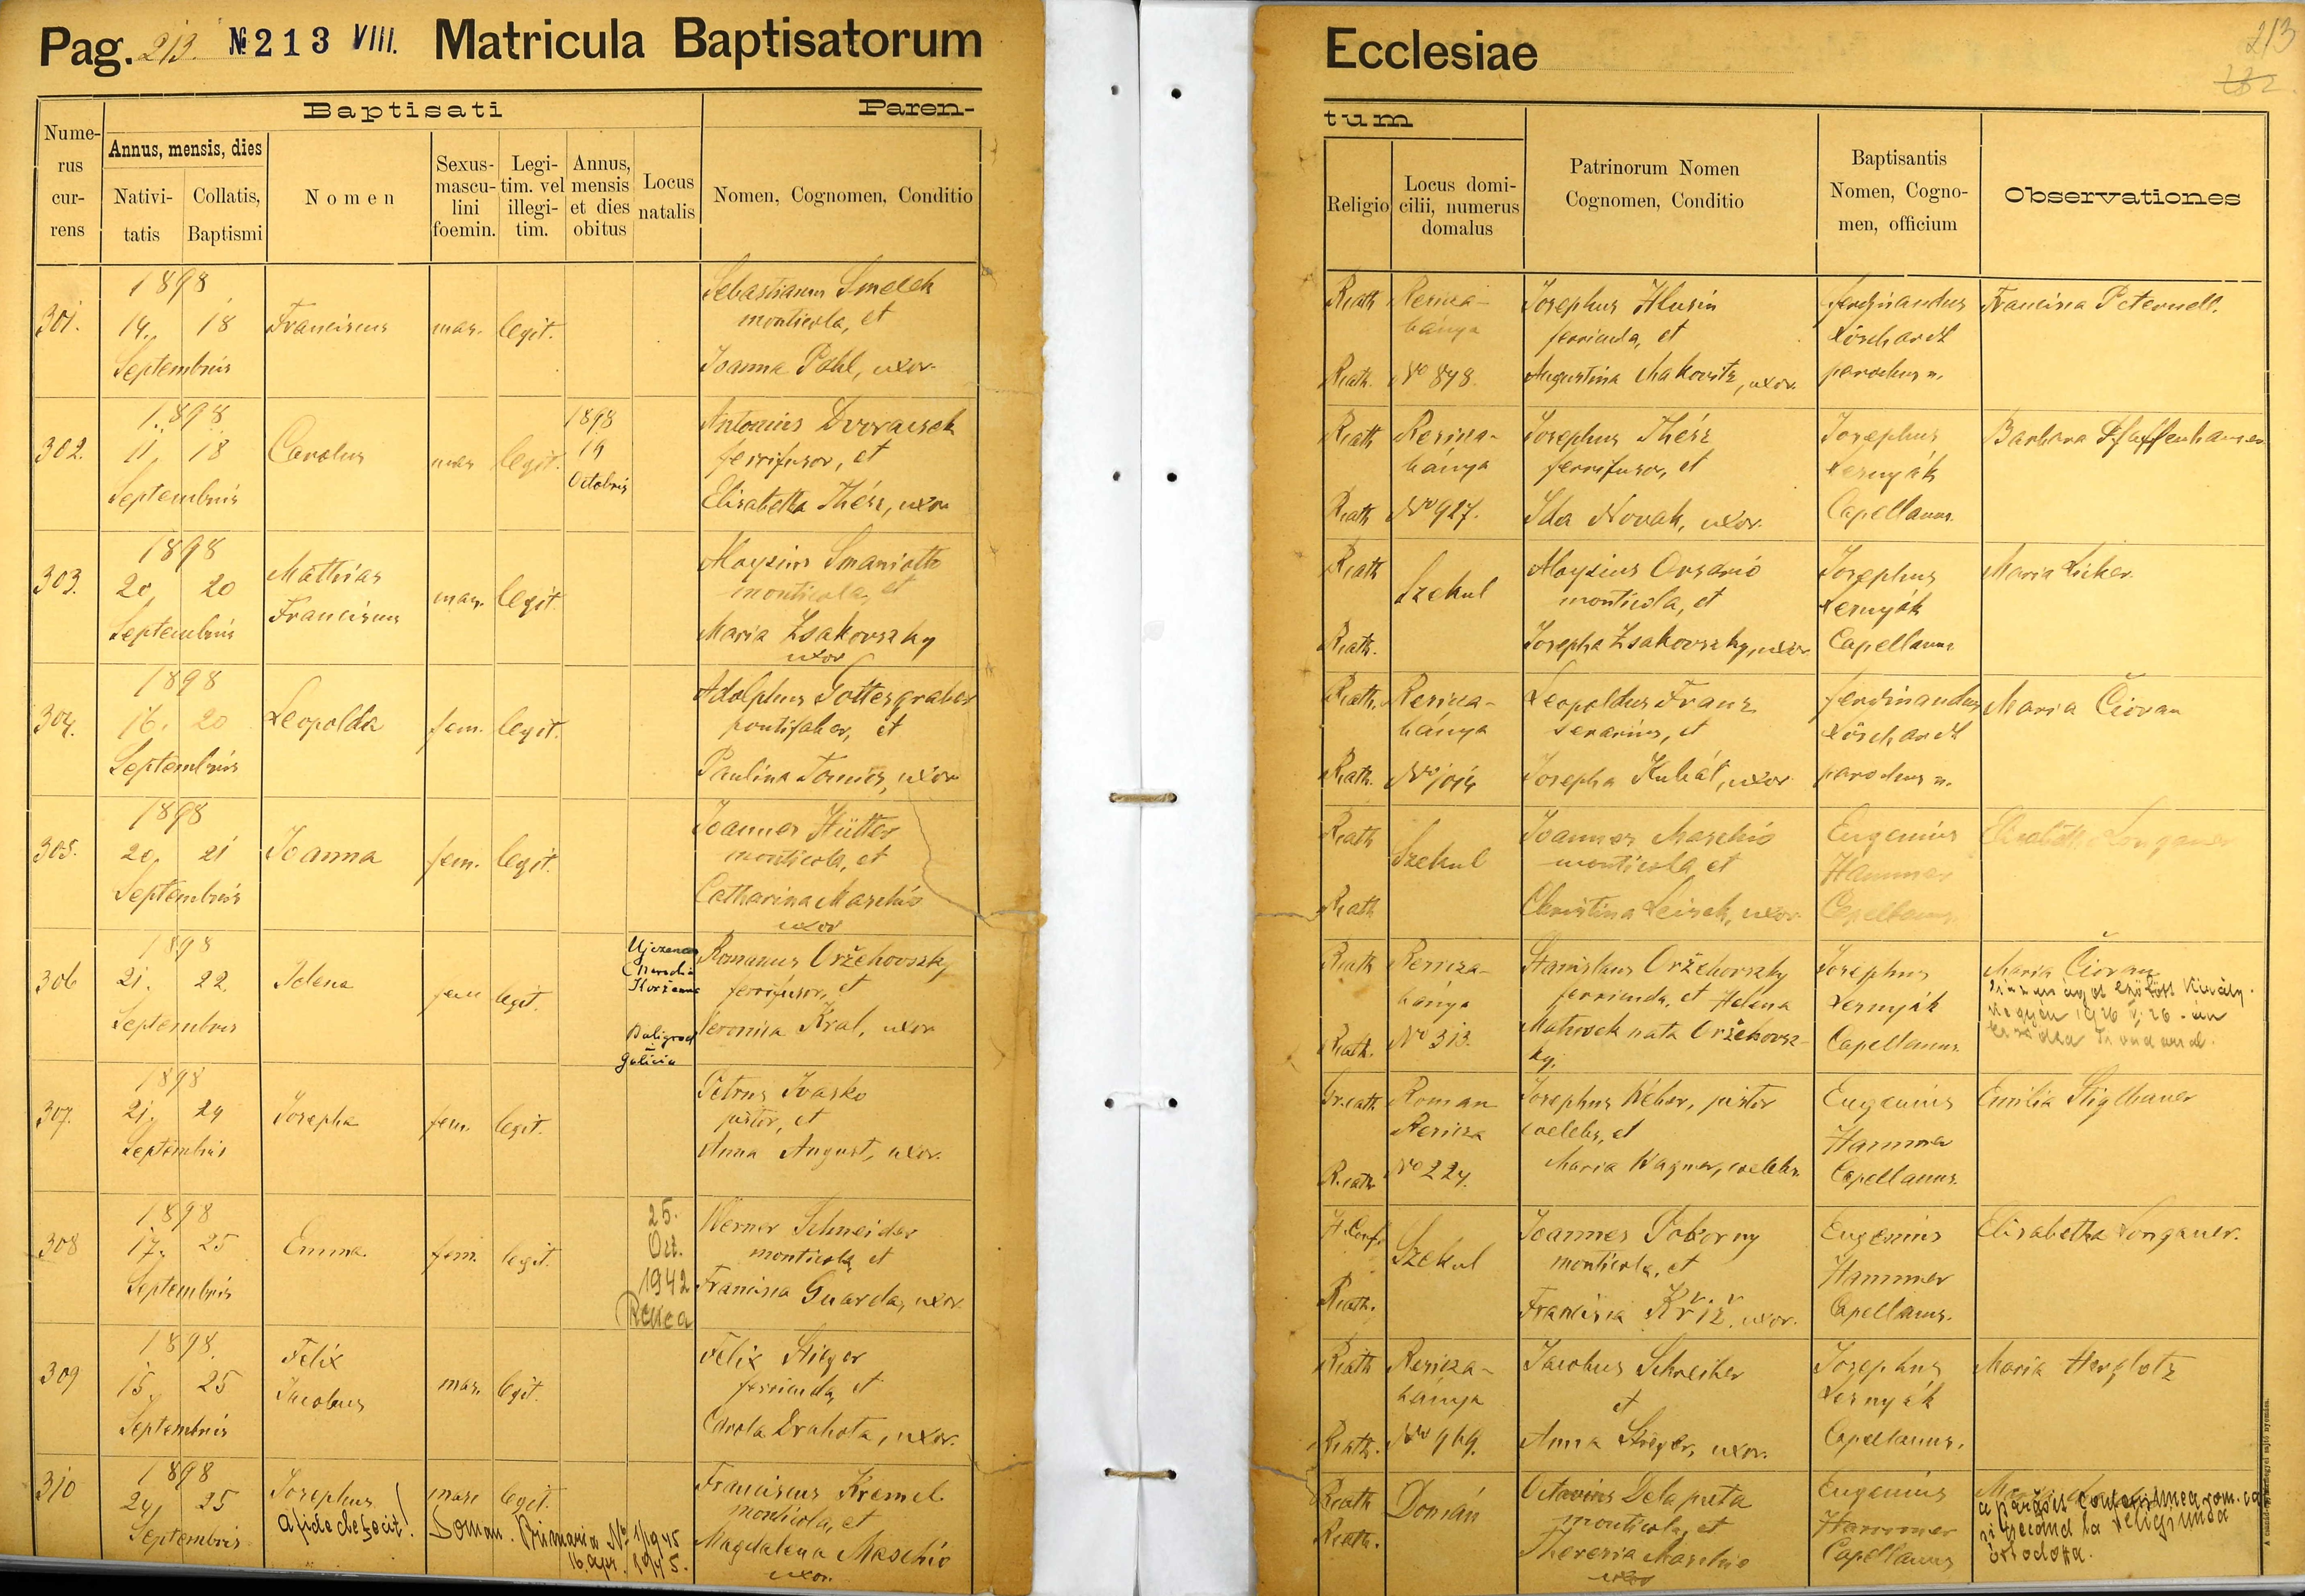 Pag. 213. № 213 VIII. Matricula Baptisatorum
Ecclesiae
213
Baptisati
Paren-
tum
Nume-
rus
cur-
rens
Annus, mensis, dies
Nativi-
tatis
Collatis,
Baptismi
Nomen
Sexus-
mascu-
lini
foemin.
Legi-
tim. vel
illegi-
tim.
Annus,
mensis
et dies
obitus
Locus
natalis
Nomen, Cognomen, Conditio
Religio
Locus domi-
cilii, numerus
domalus
Patrinorum Nomen
Cognomen, Conditio
Baptisantis
Nomen, Cogno-
men, officium
Observationes
301.
1898
14. 18
Septembris
Franciscus
mas.
legit.
Sebastianus Smelek
monticola, et
Joanna Pohl, uxor.
Rcath
Rcath.
Resicza-
bánya
No 848.
Josephus Hlusin
ferricuda, et
Augustina Makovits, uxor.
Ferdinandus
Löschardt
parochus m.
Francisca Peternell.
302.
1898
11. 18
Septembris
Carolus
mas
legit.
1898
19
Octobris
Antonius Dvoracsek
ferrifusor, et
Elisabetha Thész, uxor
Rcath
Rcath
Resicza-
bánya
No 927.
Josephus Thész
ferrifusor, et
Ida Novak, uxor.
Josephus
Lernyák
Capellanus.
Barbara Pfaffenhauser
303.
1898
20. 20
Septembris
Mathias
Franciscus
mas.
legit.
Aloysius Smaniotto
monticola, et
Maria Zsakovszky
uxor
Rcath
Rcath.
Szekul
Aloysius Orsario
monticola, et
Josepha Zsakovszky, uxor
Josephus
Lernyák
Capellanus
Maria Licker.
304.
1898
16. 20
Septembris
Leopolda
fem.
legit.
Adolphus Tottergraber
pontifaber, et
Paulina Tomes, uxor
Rcath.
Rcath.
Resicza-
bánya
Leopoldus Franz
serarius, et
Josepha Kubát, uxor
Ferdinandus
Löschardt
parochus m.
Maria Čiovan
305.
1898
20. 21
Septembris
Joanna
fem.
legit.
Joannes Hütter
monticola, et
Catharina Maschio
uxor
Rcath
Rcath
Szekul
Joannes Maschio
monticola, et
Christina Leisek, uxor.
Eugenius
Hammer
Capellanus.
Elisabetha Longauer
306
1898
21. 22.
Septembris
Helena
fem
legit.
Baligrod
Galicia
Romanus Oržehovszky
ferrifusor, et
Veronica Kral, uxor
Rcath
Rcath.
Resicza-
bánya
No 313.
Stanislaus Oržehovszky
ferricuda, et Helena
Matusek nata Oržehovsz-
ky.
Josephus
Lernyák
Capellanus.
Maria Čiovan
307.
1898
21. 24
Septembris
Josepha
fem.
legit.
Petrus Ivasko
pistor, et
Anna August, uxor.
Gr.cath
R.cath
Roman
Resicza
No 224.
Josephus Weber, pistor
coelebs, et
Maria Wagner, coelebs.
Eugenius
Hammer
Capellanus.
Emilia Stiglbauer
308
1898
17. 25
Septembris
Emma
fem.
legit.
25.
Oct.
1942.
Werner Schneider
monticola, et
Francisca Guarda, uxor.
H.Conf.
Rcath.
Szekul
Joannes Pokorny
monticola, et
Francisca Kříž, uxor.
Eugenius
Hammer
Capellanus.
Elisabetha Longauer.
309
1898.
15. 25
Septembris
Felix
Jacobus
mas.
legit.
Felix Stieger
ferricuda, et
Carola Drahota, uxor.
Rcath
Rcath.
Resicza-
bánya
No 969.
Jacobus Schreiber
et
Anna Stieger, uxor.
Josephus
Lernyák
Capellanus.
Maria Herglotz
310
1898
24. 25
Septembris
Josephus
a fide defecit!
masc
legit.
Doman. Primaria No 1/1945
16. apr. 1945.
Franciscus Kremel
monticola, et
Magdalena Maschio
uxor.
Rcath
Rcath.
Domán
Octavius Delapreta
monticola, et
Theresia Maschio
uxor
Eugenius
Hammer
Capellanus
a părăsit conf.
trecând la religiunea
ortodoxă.